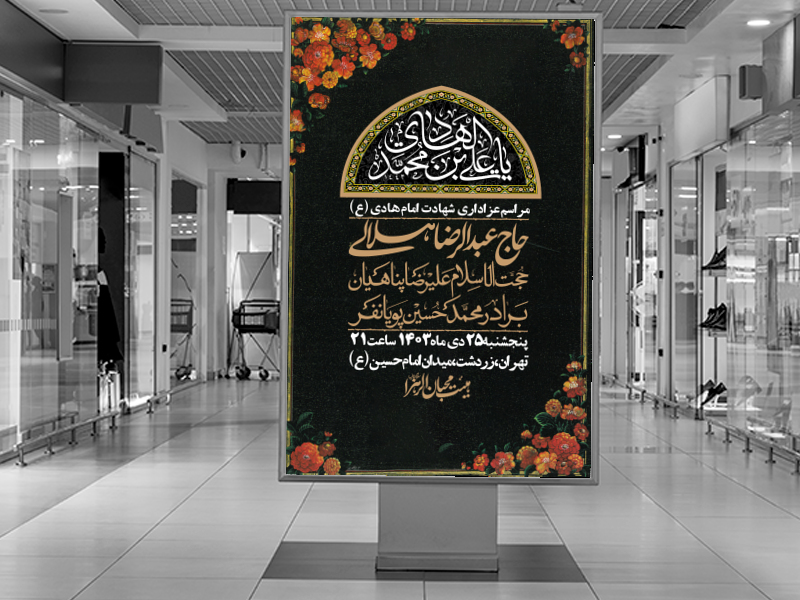 یا علی بن محمد الهادی
مراسم عزاداری شهادت امام هادی (ع)
حاج عبدالرضا هلالی
حجت الاسلام علیرضا پناهیان
برادر محمد حسین پویانفر
پنجشنبه ۲۵ دی ماه ۱۴۰۳ ساعت ۲۱
تهران، زردشت، میدان امام حسین (ع)
هیئت محبان الزهرا